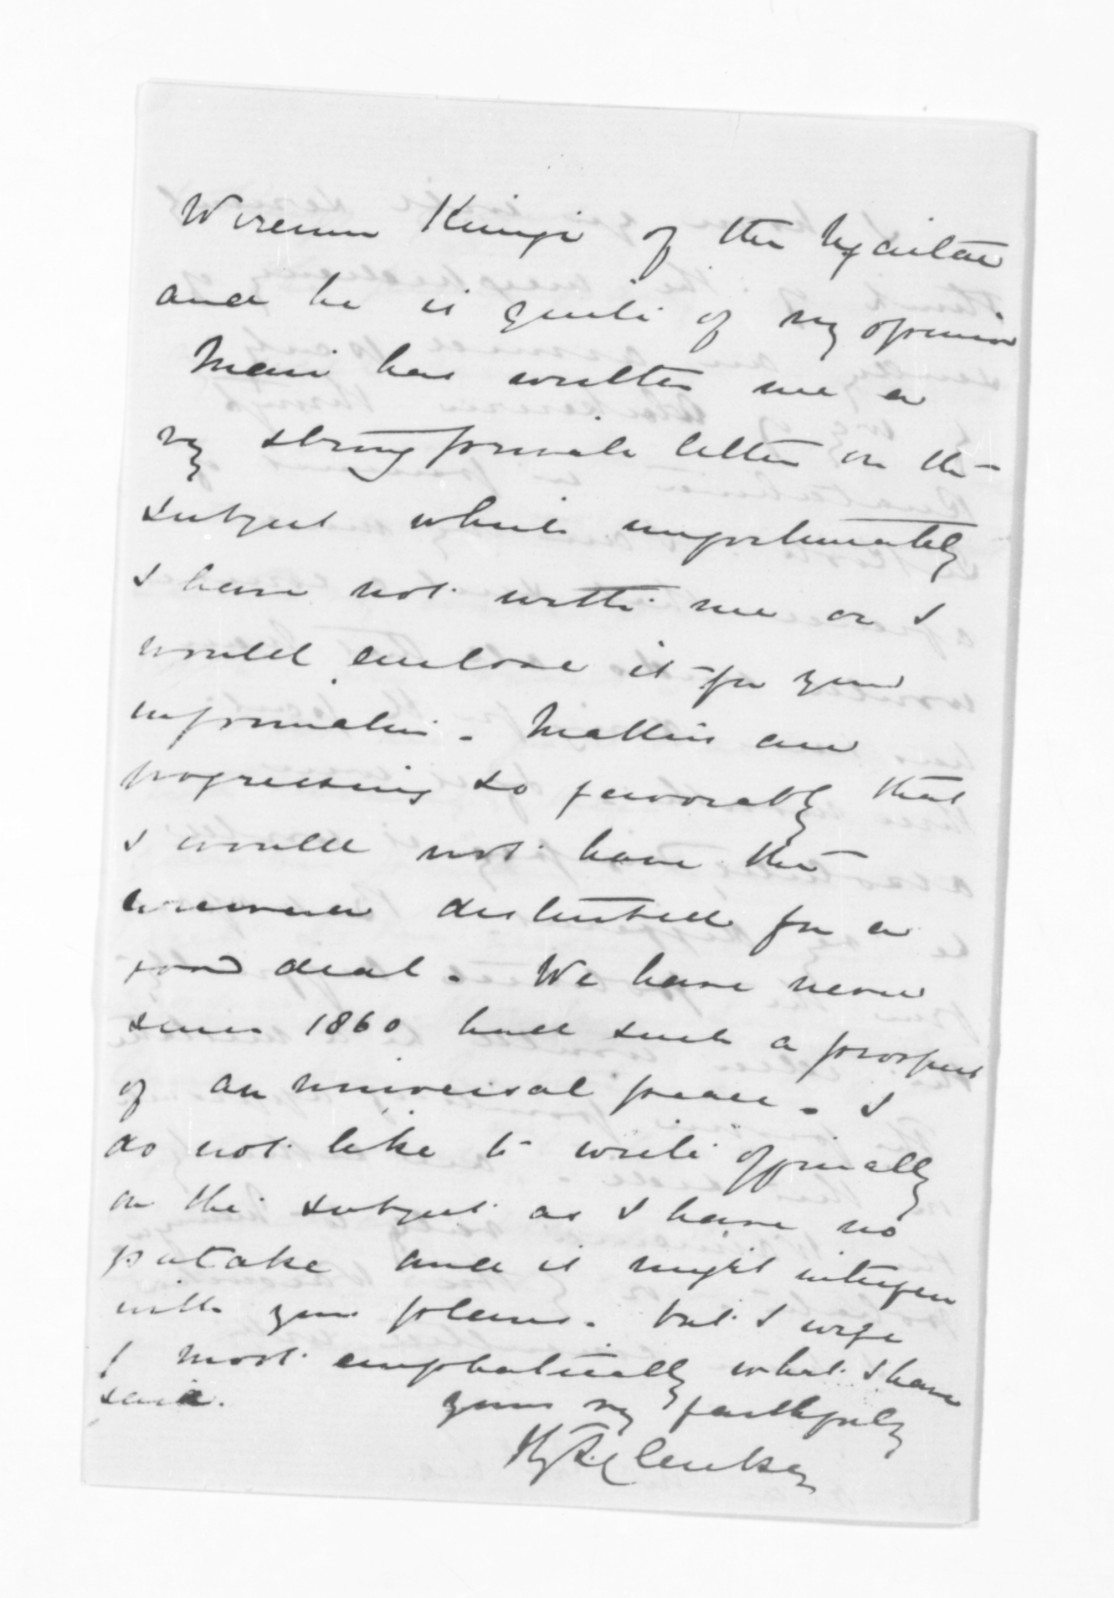 Wiremu Kingi of the Ngaitai
and he is quite of my opinion
Mair has written me a
vy strong private letter on the
subject which unfortunately
I have not with me or I
would enclose it for your
information. Matters are
progressing so favorably that
I would not have the
disturbed for a
good deal. We have never
since 1860 had such a prospect
of an universal peace. I
do not like to write officially
on the subject as I have no
putake and it might interfere
with your plans. but I urge
most emphatically what I have
said.
yours vy faithfully
Hy T. Clarke